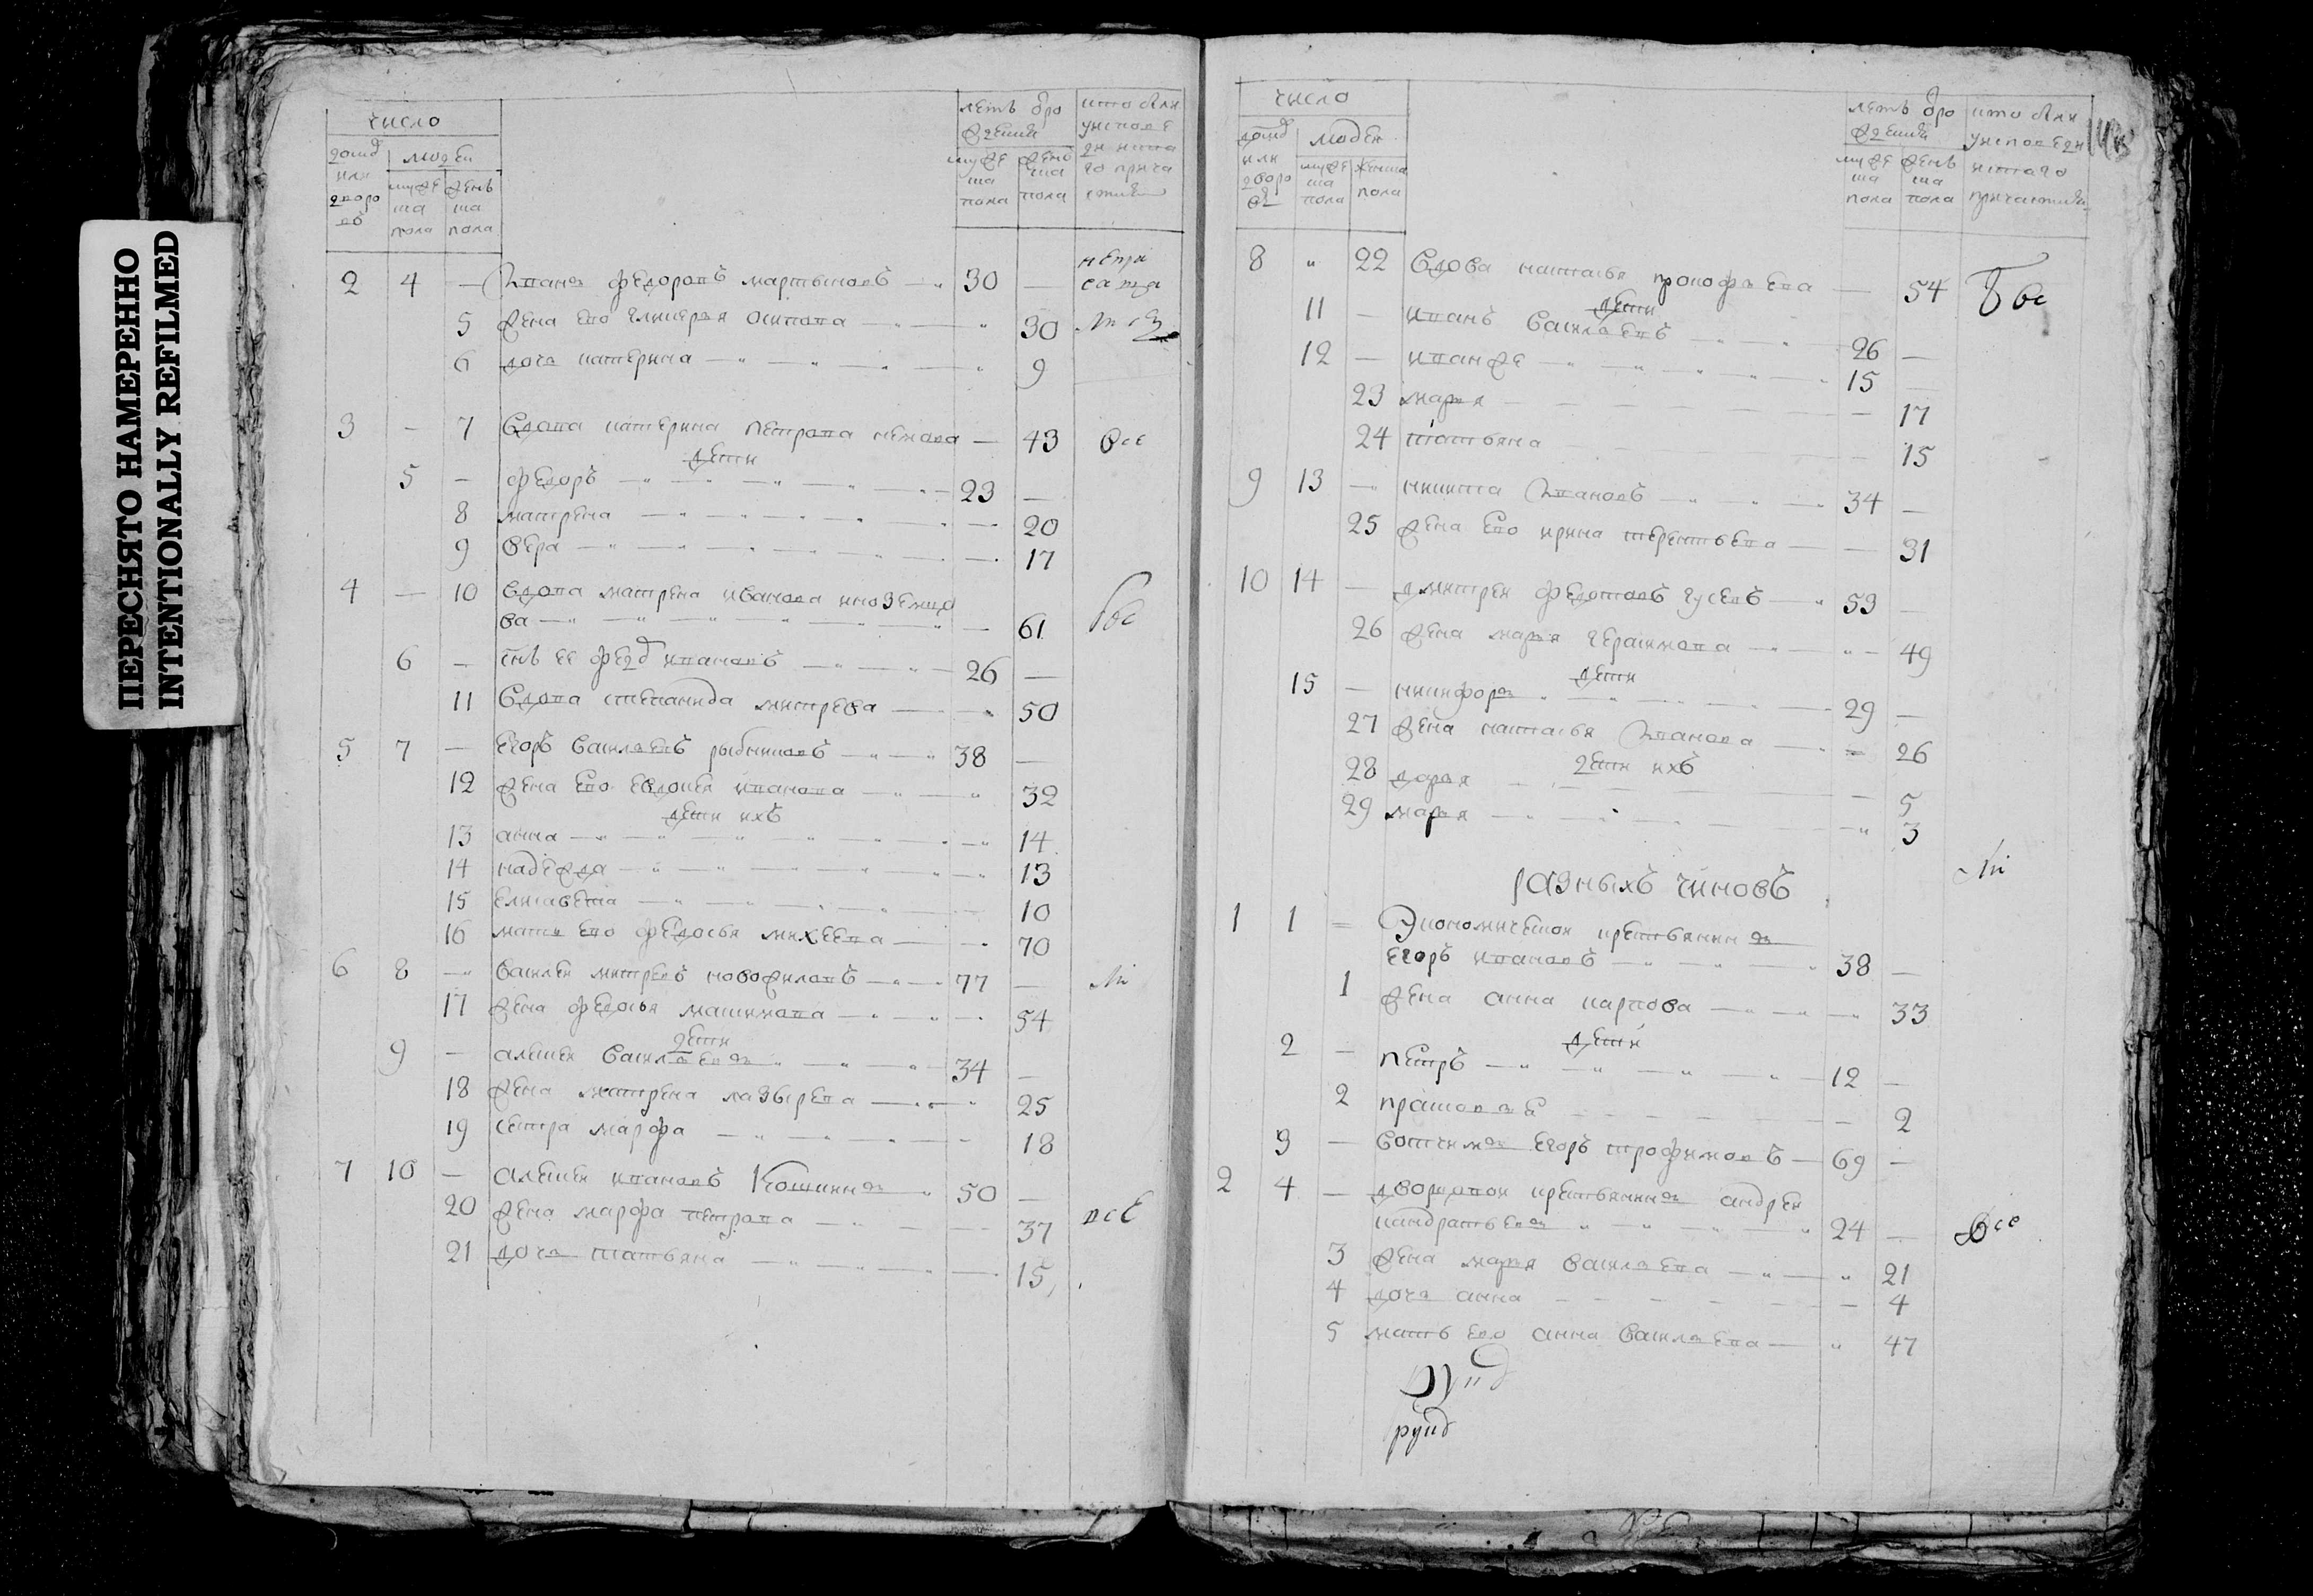 ПЕРЕСНЯТО НАМЕРЕННО
INTENTIONALLY REFILMED
число
домов или дворовъ
людей
мужеска пола
женска пола
летъ от рождения
мужеска пола
женска пола
кто были у исповеди и святаго причастия
2 4 — Степанъ федоровъ мартыновъ — 30 —
5 жена его гликерья осипова — 30
6 дочь катерина — 9
3 — 7 вдова катерина петрова — 43 все
дети
5 — федоръ — 23 —
8 матрена — 20
9 вера — 17
4 — 10 вдова матрена иванова иноземцо
ва — 61 все
6 — снъ ее федоръ ивановъ — 26 —
11 вдова степанида митрева — 50
5 7 — егоръ васильевъ рыбниковъ — 38 —
12 жена его евдокея иванова — 32
дети ихъ
13 анна — 14
14 надежда — 13
15 елисавета — 10
16 мати его федосья михеева — 70
6 8 — василеи митревъ новожиловъ — 77 —
17 жена федосья максимова — 54
дети
9 — алексеи васильевъ — 34 —
18 жена матрена лазырева — 25
19 сестра марфа — 18
7 10 — алексеи ивановъ Кошкинъ 50 —
20 жена марфа петрова — 37 все
21 дочь татьяна — 15
число
домовъ или дворовъ
людей
мужеска пола
женска пола
летъ от рождения
мужеска пола
женска пола
кто были у исповеди и святаго причастия
8 " 22 вдова наталья прокофьева — 54 все
дети
11 — иванъ васильевъ — 26 —
12 — иванже — 15 —
23 марья — 17
24 татьяна — 15
9 13 — никита Степановъ — 34 —
25 жена его ирина терентьева — 31
10 14 — дмитреи федотовъ гусевъ — 53 —
26 жена марья герасимова — 49
дети
15 — никифоръ — 29 —
27 жена наталья Степанова — 26
дети ихъ
28 дарья — 5
29 марья — 3
разныхъ чиновъ
1 1 — Экономическои крестьянинъ
егоръ ивановъ — 38 —
1 жена анна карпова — 33
дети
2 — петръ — 12 —
2 прасковья — 2
3 — вотчимъ егоръ трофимовъ — 69 —
2 4 — дворцовои крестьянинъ андреи
кандратьевъ — 24 — все
3 жена марья васильева — 21
4 дочь анна — 4
5 мать его анна васильева — 47